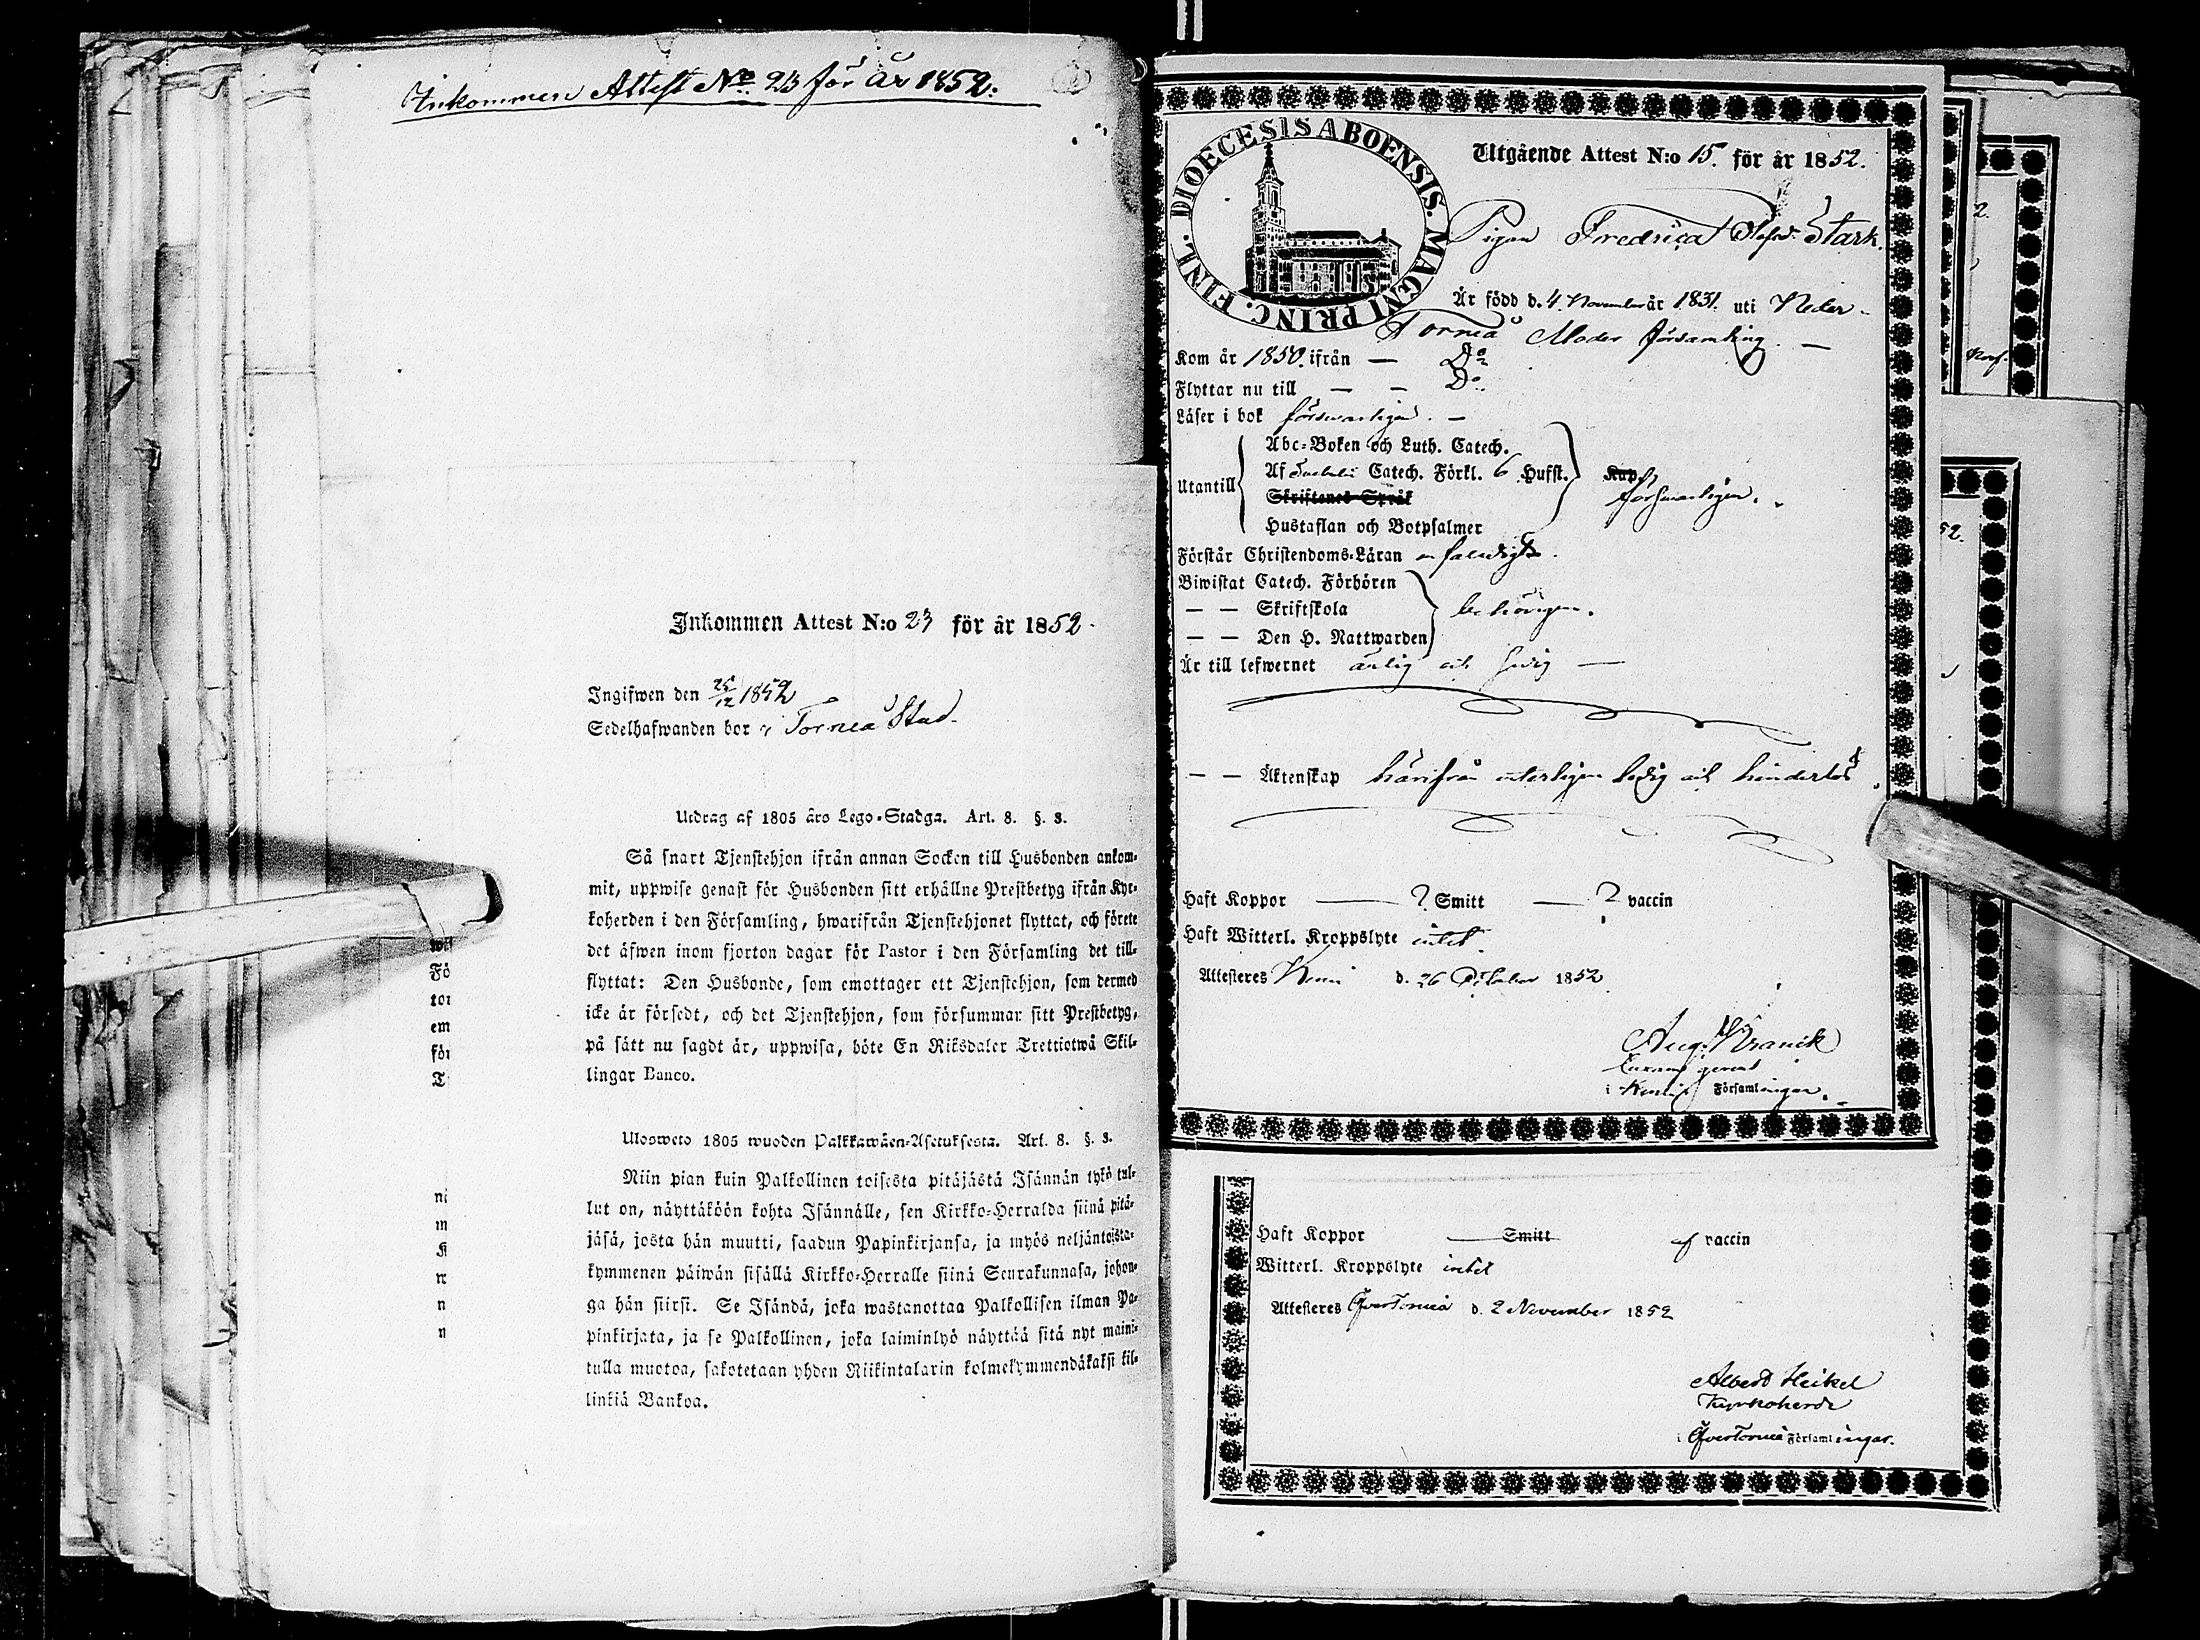 Inkommen Attest No. 23 för år 1852.
Inkommen Attest N:o 23 för år 1852.
Ingifwen den 25/12 1852
Sedelhafwanden bor i Torneå Stad.
Utdrag af 1805 års Lego-Stadga. Art. 8. §. 3.
Så snart Tjenstehjon ifrån annan Socken till Husbonden ankom-
mit, uppwise genast för Husbonden sitt erhållne Prestbetyg ifrån Kyr-
koherden i den Församling, hwarifrån Tjenstehjonet flyttat, och förete
det äfwen inom fjorton dagar för Pastor i den Församling det till-
flyttat: Den Husbonde, som emottager ett Tjenstehjon, som dermed
icke är försedt, och det Tjenstehjon, som försummar sitt Prestbetyg,
på sätt nu sagdt är, uppwisa, böte En Riksdaler Trettiotwå Skil-
lingar Banco.
Ulosweto 1805 wuoden Palkkawäen-Asetuksesta. Art. 8. §. 3.
Niin pian kuin Palkollinen toisesta pitäjästä Isännän tykö tul-
lut on, näyttäköön kohta Isännälle, sen Kirkko-Herralda siinä pitä-
jäsä, josta hän muutti, saadun Papinkirjansa, ja myös neljäntoista-
kymmenen päiwän sisällä Kirkko-Herralle siinä Seurakunnasa, johon-
ga hän siirsi. Se Isändä, joka wastanottaa Palkollisen ilman Pa-
pinkirjata, ja se Palkollinen, joka laiminlyö näyttää sitä nyt maini-
tulla muotoa, sakotetaan yhden Riikintalarin kolmekymmendäkaksi kil-
linkiä Bankoa.
Fö
tor
em
för
T
ni
m
n
n
DIOECESIS ABOENSIS. MAGNI PRINC. FINL.
Utgående Attest N:o 15. för år 1852.
Pigan Fredrica Stark.
Är född d. 4 November år 1831. uti Neder-
Torneå Moder församling. —
Kom år 1850. ifrån — Do
Flyttar nu till — — Do.
Läser i bok förswarligen. —
Utantill
Abc-Boken och Luth. Catech.
Af Catech. Förkl. 6 Hufst.
Skriftenes Språk
Hustaflan och Botpsalmer
Kap.
förswarligen.
Förstår Christendoms-Läran
Biwistat Catech. Förhören
— — Skriftskola
— — Den H. Nattwarden
behörigen.
Är till lefwernet ärlig och —
— — Äktenskap härifrån ledig och hinderlös.
Haft Koppor — ? Smitt — ? vaccin
Haft Witterl. Kroppslyte intet.
Attesteres Kemi d. 26 October 1852
Aug. Kranck
i Kemi Församlingar.
Haft Koppor — Smitt af vaccin
Witterl. Kroppslyte intet
Attesteres Öfvertorneå d. 2 November 1852
Albert Heikel
Kyrkoherde
i Öfvertorneå Församlingar.
2.
52.